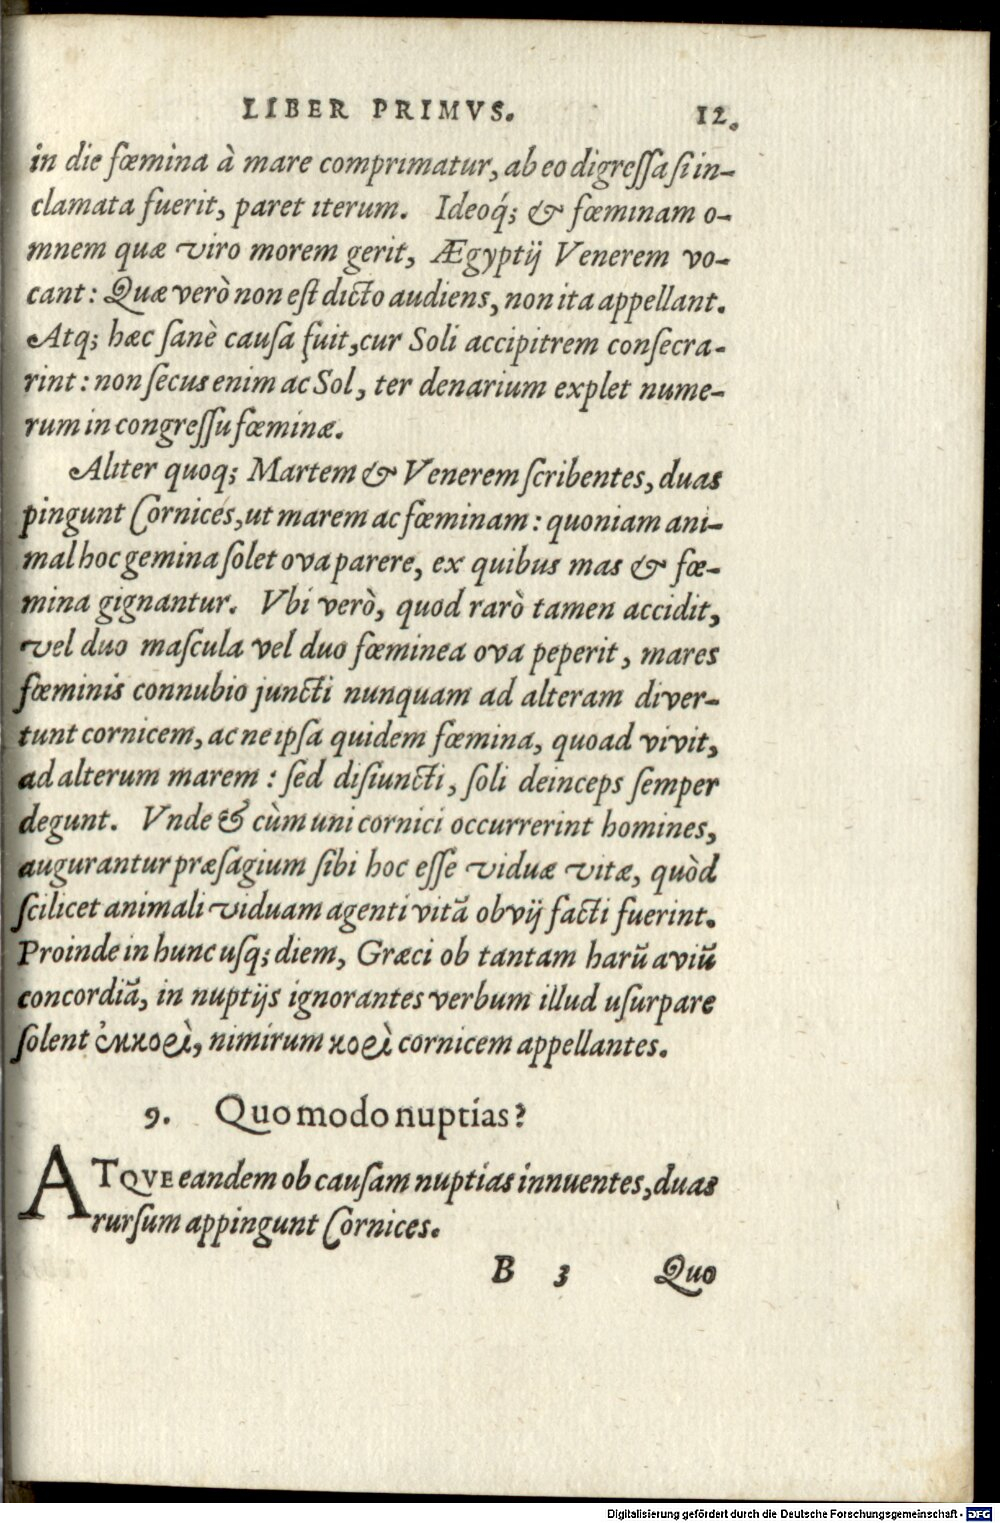 LIBER PRIMVS. 12.
in die fœmina à mare comprimatur, ab eo digreſſa ſi in-
clamata fuerit, paret iterum. Ideoq́; & fœminam o-
mnem quæ viro morem gerit, Ægyptij Venerem vo-
cant: Quæ verò non eſt dicto audiens, non ita appellant.
Atq; hæc ſanè cauſa fuit, cur Soli accipitrem conſecra-
rint: non ſecus enim ac Sol, ter denarium explet nume-
rum in congreſſu fœminæ.
Aliter quoq; Martem & Venerem ſcribentes, duas
pingunt Cornices, ut marem ac fœminam: quoniam ani-
mal hoc gemina ſolet ova parere, ex quibus mas & fœ-
mina gignantur. Vbi verò, quod rarò tamen accidit,
vel duo maſcula vel duo fœminea ova peperit, mares
fœminis connubio juncti nunquam ad alteram diver-
tunt cornicem, ac ne ipſa quidem fœmina, quoad vivit,
ad alterum marem: ſed diſiuncti, ſoli deinceps ſemper
degunt. Vnde & cùm uni cornici occurrerint homines,
augurantur præſagium ſibi hoc eſſe viduæ vitæ, quòd
ſcilicet animali viduam agenti vitã obvij facti fuerint.
Proinde in hunc uſq; diem, Græci ob tantam harũ aviũ
concordiã, in nuptijs ignorantes verbum illud uſurpare
ſolent ἐκκορὶ, nimirum κορὶ cornicem appellantes.
9. Quomodo nuptias?
ATQVE eandem ob cauſam nuptias innuentes, duas
rurſum appingunt Cornices.
B 3 Quo
Digitalisierung gefördert durch die Deutsche Forschungsgemeinschaft - DFG